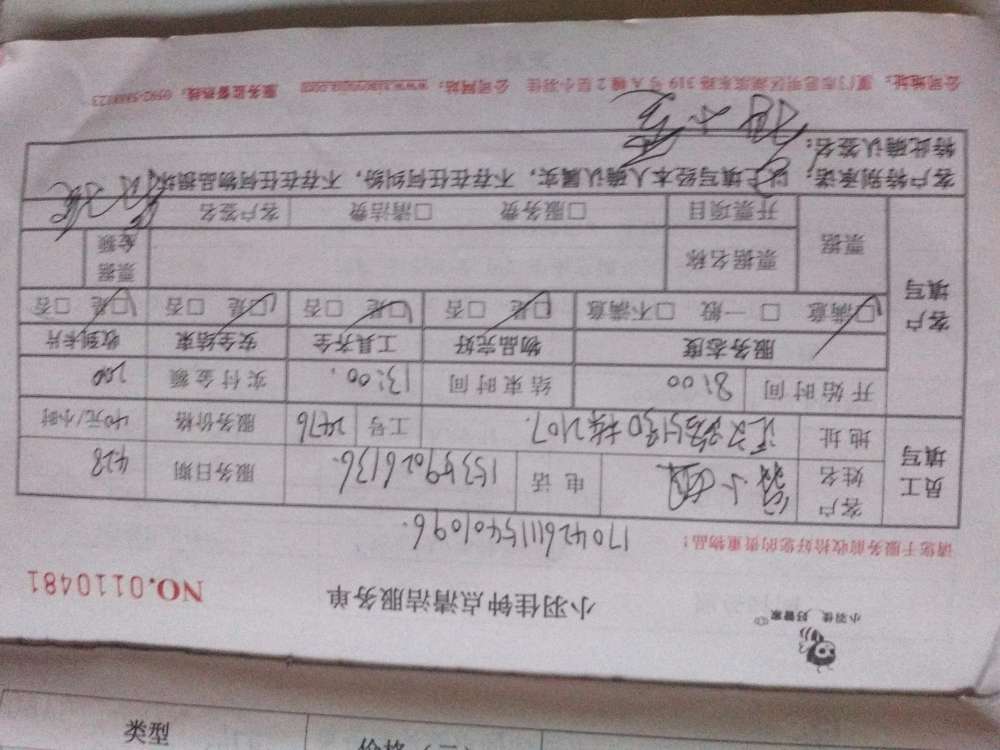 小羽佳 好管家
小羽佳钟点清洁服务单
NO.0110481
请您于服务前收拾好您的贵重物品!
1704261115401096.
员工填写
客户姓名
小姐
电话
15359026136.
服务日期
428
地址
2107.
工号
2476
服务价格
40元/小时
开始时间
8:00
结束时间
13:00.
实付金额
200
客户填写
服务态度
物品完好
工具齐全
安全结束
收到卡片
□满意 □一般 □不满意
□是 □否
□是 □否
□是 □否
□是 □否
票据
票据名称
票据金额
开票项目
□服务费 □清洁费
客户签名
客户特别承诺:以上填写经本人确认属实,不存在任何纠纷,不存在任何物品损坏
特此确认签名:
公司地址:厦门市思明区湖滨东路319号A幢2层小羽佳
公司网站:
服务监督热线:
类型